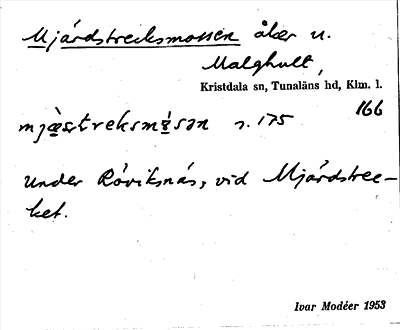 Mjårdstrecksmossen åker u.
Malghult,
Kristdala sn, Tunaläns hd, Klm. l.
166
s. 175
under Röviksnäs, vid Mjårdstrec-
ket.
Ivar Modéer 1953